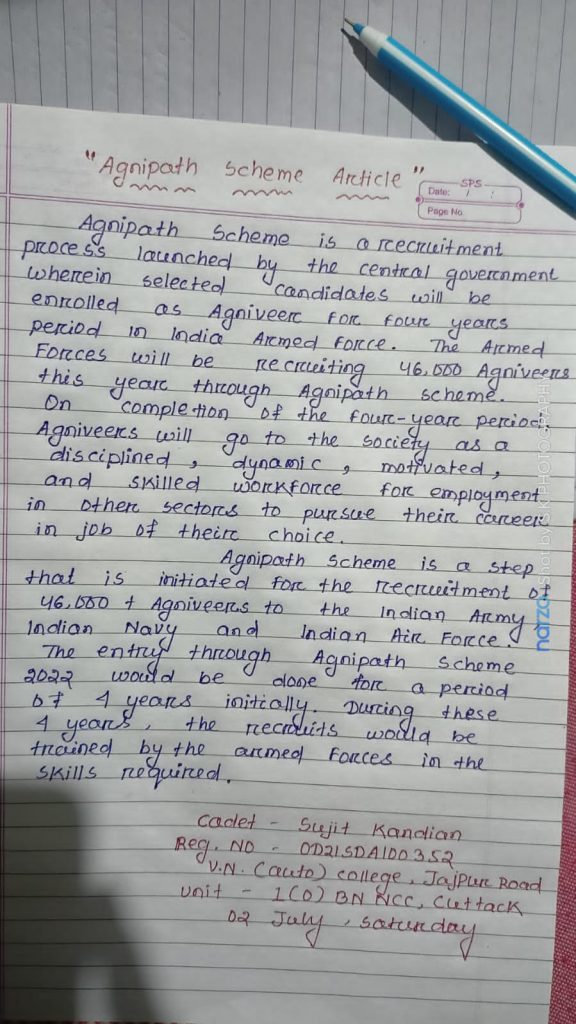 "Agnipath Scheme Article"
SPS
Date: / :
Page No.
Agnipath Scheme is a recruitment
process launched by the central government
wherein selected candidates will be
enrolled as Agniveer for four years
period in India Armed Force. The Armed
Forces will be recruiting 46,000 Agniveers
this year through Agnipath scheme.
On completion of the four-year period,
Agniveers will go to the society as a
disciplined, dynamic, motivated,
and skilled workforce for employment
in other sectors to pursue their career
in job of their choice.
Agnipath scheme is a step
that is initiated for the recruitment of
46,000 + Agniveers to the Indian Army
Indian Navy and Indian Air Force.
The entry through Agnipath Scheme
2022 would be done for a period
of 4 years initially. During these
4 years, the recruits would be
trained by the armed forces in the
skills required.
Cadet - Sujit Kandian
Reg. NO - OD21SDA100352
V.N. (auto) college, Jajpur Road
Unit - 1(O) BN NCC, Cuttack
02 July, Saturday
narzo Shot by PHOTOGRAPHY